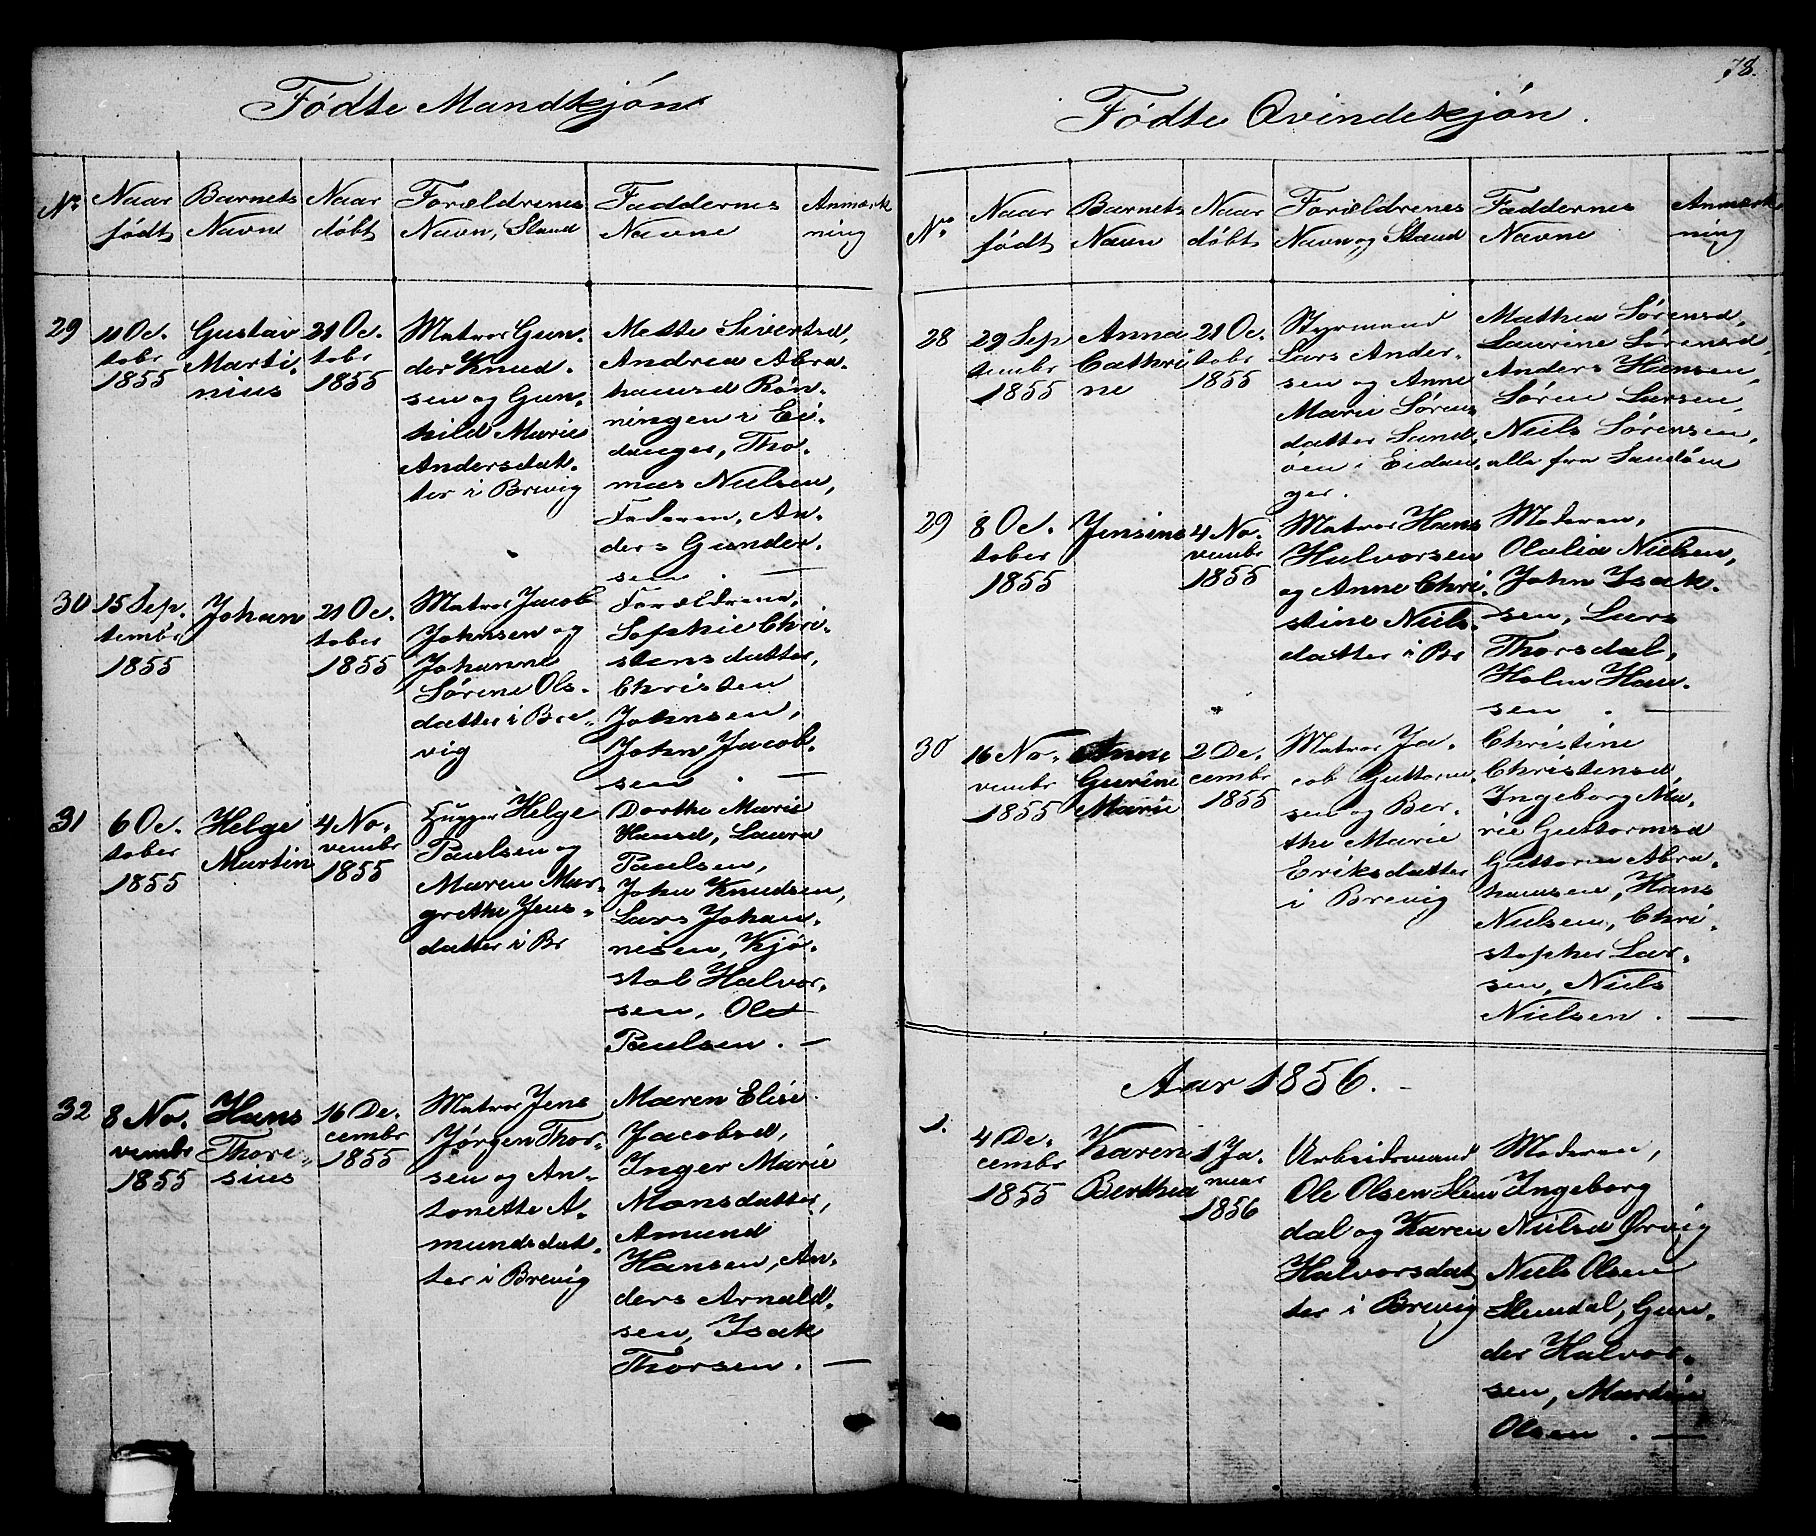 Fødte Mandkjøn
No
Naar
født
Barnets
Navn
Naar
døbt
Forældrenes
Navn, Stand
Faddernes
Navne
Anmærk
ning
29
11 Oc.
tobr
1855
Gustav
Marti-
nius
21 Oc.
tobr
1855
Matros Gun-
der Knud-
sen og Gun-
hild Marie
Andersdat-
ter i Brevig
Mette Sivertsd,
Andrea Abra-
hamsd Røn-
ningen i Ei-
danger, Tho-
mas Nielsen,
Faderen, An-
ders Gunder-
sen. —
30
15 Sep.
tembr
1855
Johan
21 Oc.
tober
1855
Matros Jacob
Johnsen og
Johanne
Sørene Ols-
datter i Bre-
vig
Forældrene,
Sophie Chri-
stensdatter,
Christen
Johnsen,
John Jacob-
sen. —
31
6 Oc.
tober
1855
Helge
Martin
4 No-
vembr
1855
Hugger Helge
Paulsen og
Maren Mar-
grethe Jens-
datter i Br
Dorthe Marie
Hansd, Laura
Paulsen,
John Knudsen,
Lars Johan-
nesen, Kjø-
stol Halvor-
sen, Ole
Paulsen. —
32
8 No.
vembr
1855
Hans
Thore-
sius
16 De.
cembr
1855
Matros Jens
Jørgen Thor-
sen og An-
tonette A-
mundsdat-
ter i Brevig
Maren Elise
Jacobsd,
Inger Marie
Monsdatter,
Amund
Hansen, An-
ders Arnold-
sen, Isak
Thorsen. —
78.
Fødte Qvindekjøn.
No
Naar
født
Barnets
Navn
Naar
døbt
Forældrenes
Navn og Stand
Faddernes
Navne
Anmærk
ning
28
29 Sep
tembr
1855
Anna
Cathri
ne
21 Oc.
tobr
1855
Styrmand
Lars Ander-
sen og Anne
Marie Sørens
datter Sand-
øen i Eidan-
ger.
Mathea Sørensd,
Laurine Sørensd,
Anders Hansen,
Søren Larsen,
Niels Sørensen,
alle fra Sandøen
29
8 Oc.
tober
1855
Jensine
4 No.
vembr
1855
Matros Hans
Halvorsen
og Anne Chri-
stine Niels-
datter i Br
Moderen,
Olalia Nielsen,
John Isak-
sen, Lars
Thorsdal,
Holm Han-
sen. —
30
16 No-
vembr
1855
Anne
Gurine
Marie
2 De.
cembr
1855
Matros Ja-
cob Guttorm-
sen og Ber-
the Marie
Eriksdatter
i Brevig
Christine
Christensd,
Ingeborg Ma-
rie Guttormsd
Guttorm Abra-
hamsen, Hans
Nielsen, Chri-
stopher Lar-
sen, Niels
Nielsen. —
Aar 1856. -
1.
4 De-
cembr
1855
Karen
Berthea
1 Ja-
nuar
1856
Arbeidsmand
Ole Olsen Slem
dal og Karen
Halvorsdat
ter i Brevig
Moderen,
Ingeborg
Nielsd Ørvig
Niels Olsen
Slemdal, Gun-
der Halvor-
sen, Martin
Olsen. —